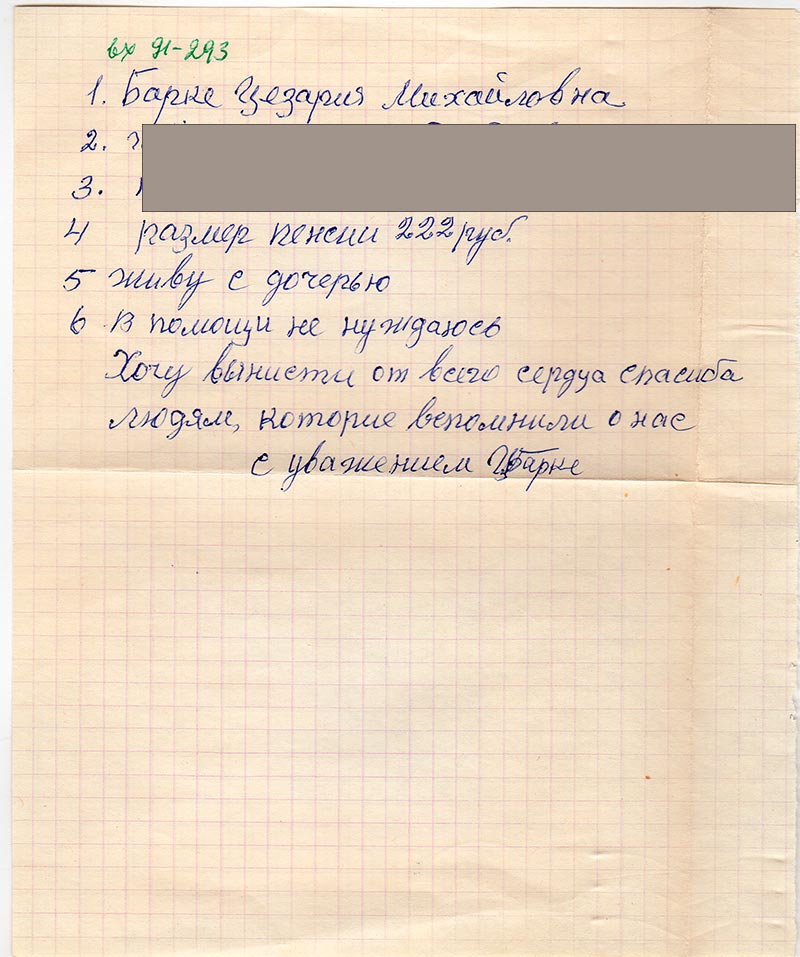 вх 91-293
1. Барке Цезария Михайловна
2.
3.
4 размер пенсии 222 руб.
5 живу с дочерью
6 В помощи не нуждаюсь
Хочу вынисти от всего сердца спасиба
людям, которие вспомнили о нас
с уважением ЦБарке